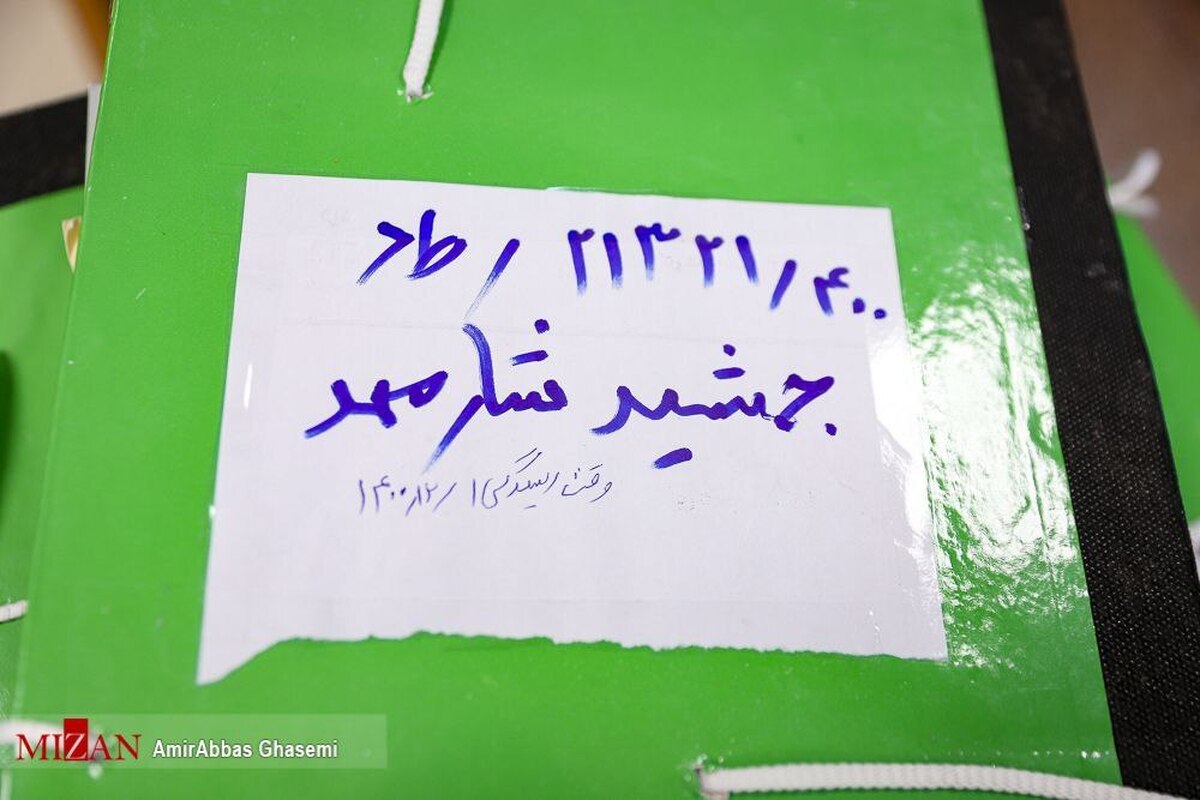 ۲۱۳۲۱/۴۰۰ / طد
جمشید شارمهد
وقت رسیدگی ۱ / ۱۴۰۰٫۱۲
MIZAN AmirAbbas Ghasemi